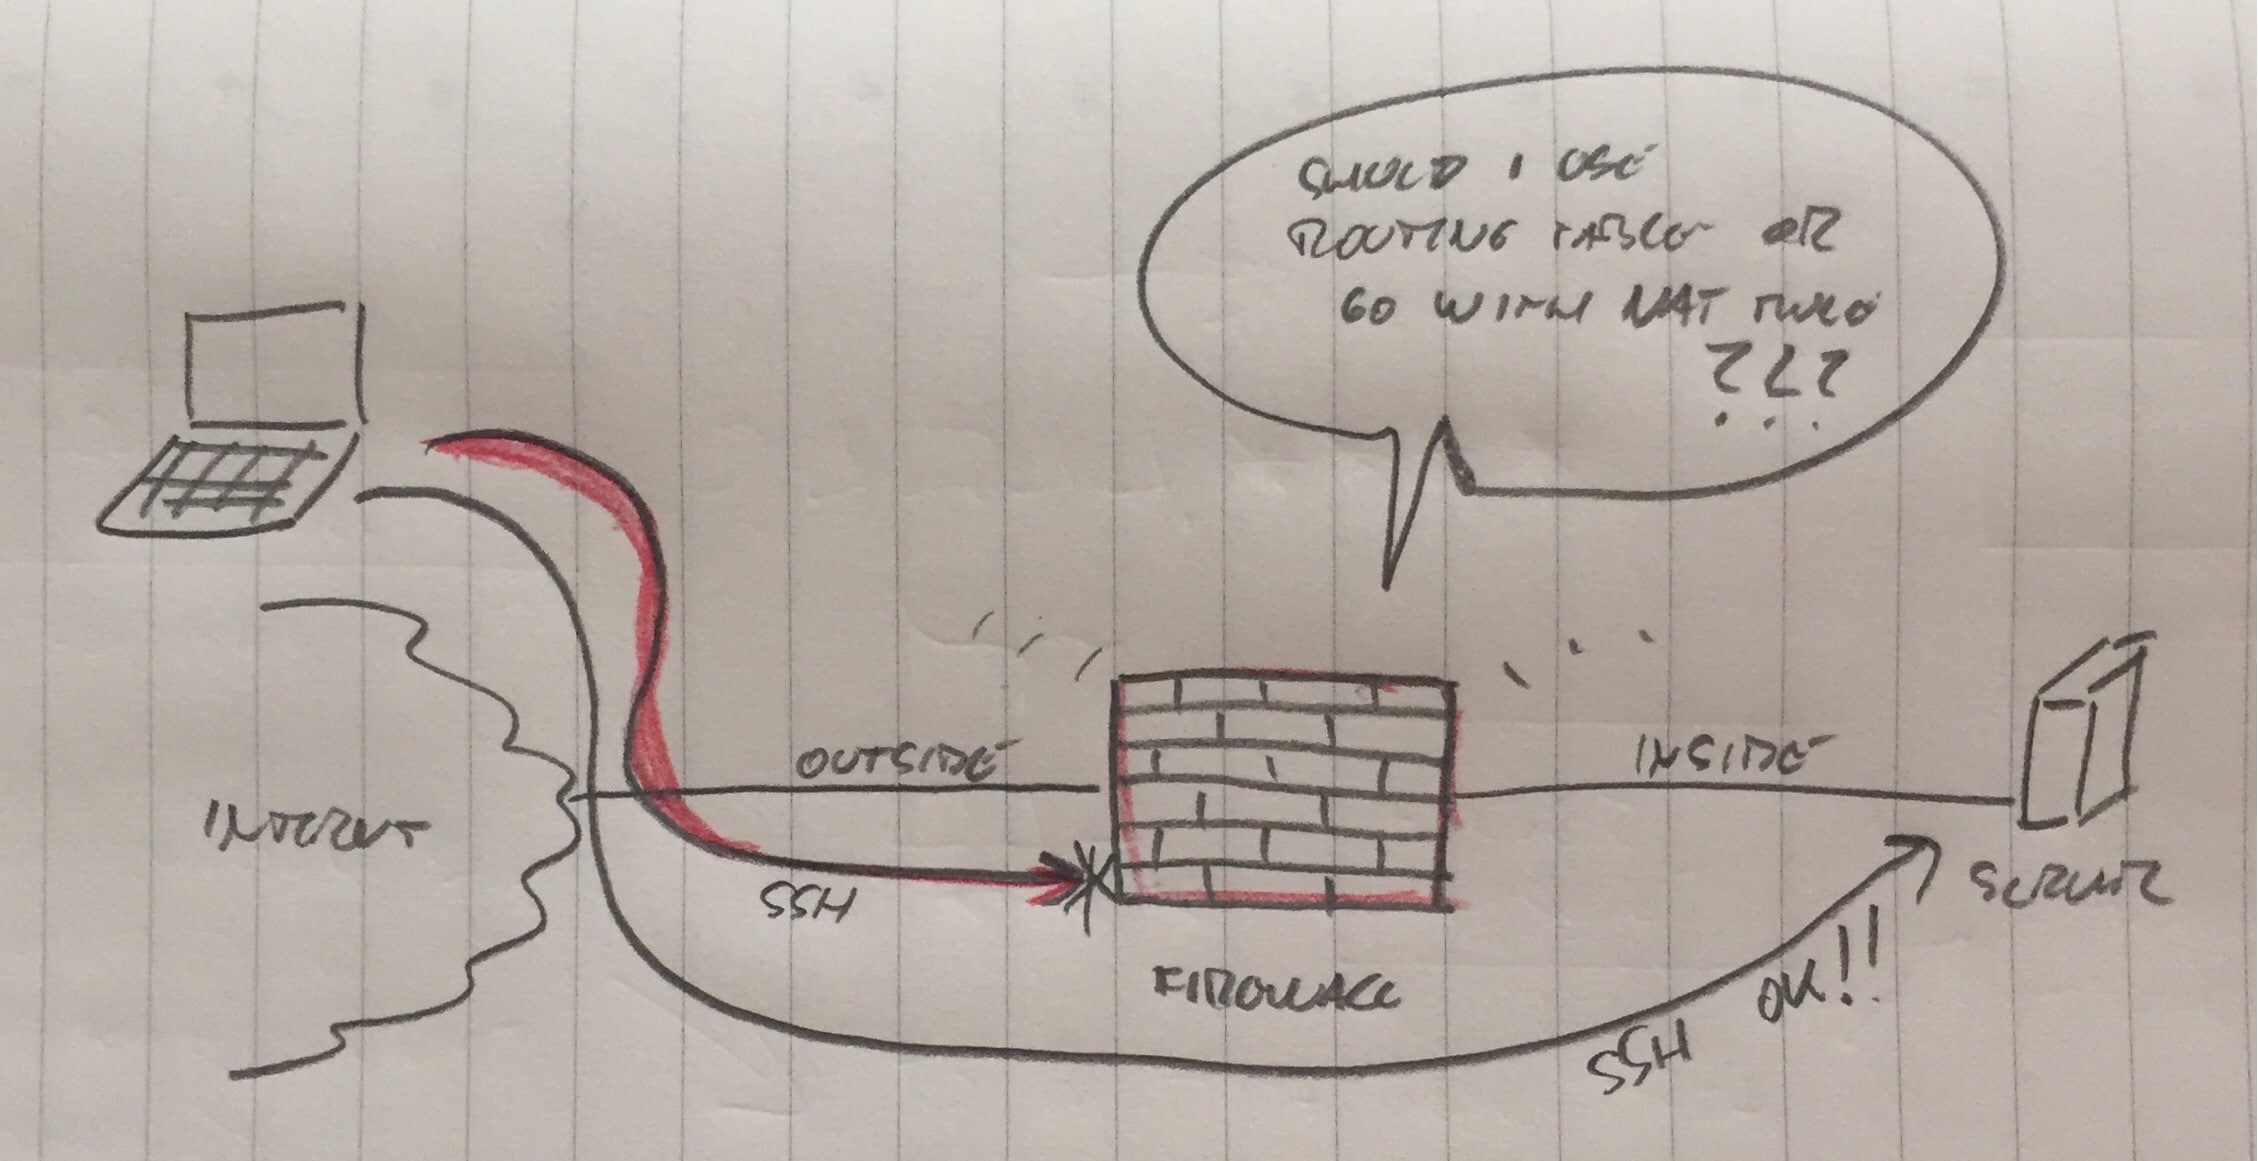 SHOULD I USE
ROUTING TABLE OR
GO WITH NAT TABLE
???
OUTSIDE
INSIDE
INTERNET
SSH
SERVER
FIREWALL
OK!!
SSH